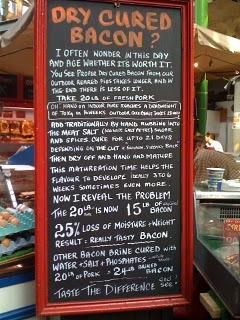 DRY CURED
BACON?
I OFTEN WONDER IN THIS DAY
AND AGE WHETHER ITS WORTH IT.
YOU SEE PROPER DRY CURED BACON FROM OUR
OUTDOOR REARED PIGS TAKES LONGER AND IN
THE END THERE IS LESS OF IT.
TAKE 20LB OF FRESH PORK
OH! HANG ON INDOOR PORK REACHES A DEADWEIGHT
OF 70Kg IN WEEKS OUTDOOR
ADD TRADITIONALLY BY HAND RUBBING INTO
THE MEAT SALT SUGAR
AND SPICES CURE FOR UP TO 21 DAYS
DEPENDING ON THE CUT
THEN DRY OFF AND HANG AND MATURE
THIS MATURATION TIME HELPS THE
FLAVOUR TO DEVELOPE IDEALY 3 TO 6
WEEKS SOMETIMES EVEN MORE.
NOW I REVEAL THE PROBLEM
THE 20LB IS NOW 15LB OF ORIGINAL BACON
25% LOSS OF MOISTURE + WEIGHT
RESULT: REALLY TASTY BACON.
OTHER BACON BRINE CURED WITH
WATER + SALT + PHOSPHATES
20LB OF PORK = 24LB BRINED BACON
TASTE THE DIFFERENCE YOU'LL SEE!